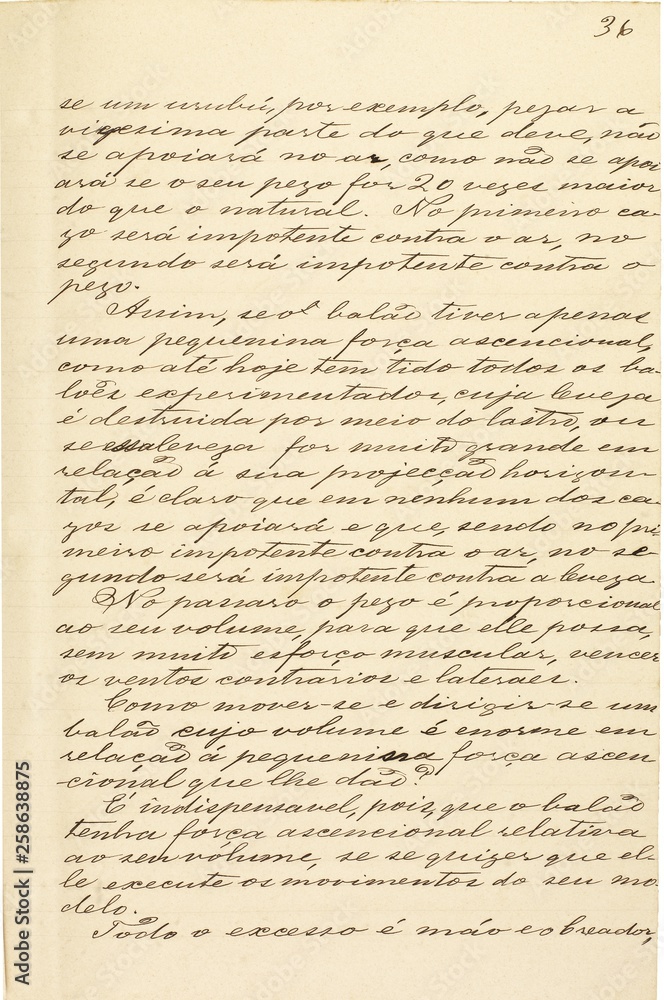 36
se um urubú, por exemplo, pezar a
vigesima parte do que deve, não
se apoiará no ar, como não se apoi
ará se o seu pezo for 20 vezes maior
do que o natural. No primeiro ca-
zo será impotente contra o ar, no
segundo será impotente contra o
pezo.
Assim, se o balão tiver apenas
uma pequenina força ascencional,
como até hoje tem tido todos os ba-
lões experimentados, cuja leveza
é destruida por meio do lastro, ou
se essa leveza for muito grande em
relação á sua projecção horizon-
tal, é claro que em nenhum dos ca-
zos se apoiará e que, sendo no pri-
meiro impotente contra o ar, no se
gundo será impotente contra a leveza
No passaro o pezo é proporcional
ao seu volume, para que elle possa,
sem muito esforço muscular, vencer
os ventos contrarios e lateraes.
Como mover-se e dirigir-se um
balão cujo volume é enorme em
relação á pequenina força ascen
-cional que lhe dão?
É indispensavel, pois, que o balão
tenha força ascencional relativa
ao seu vólume, se se quizer que el-
le execute os movimentos do seu mo-
delo.
Todo o excesso é máo e o breador,
Adobe Stock | #258638875
Adobe Stock